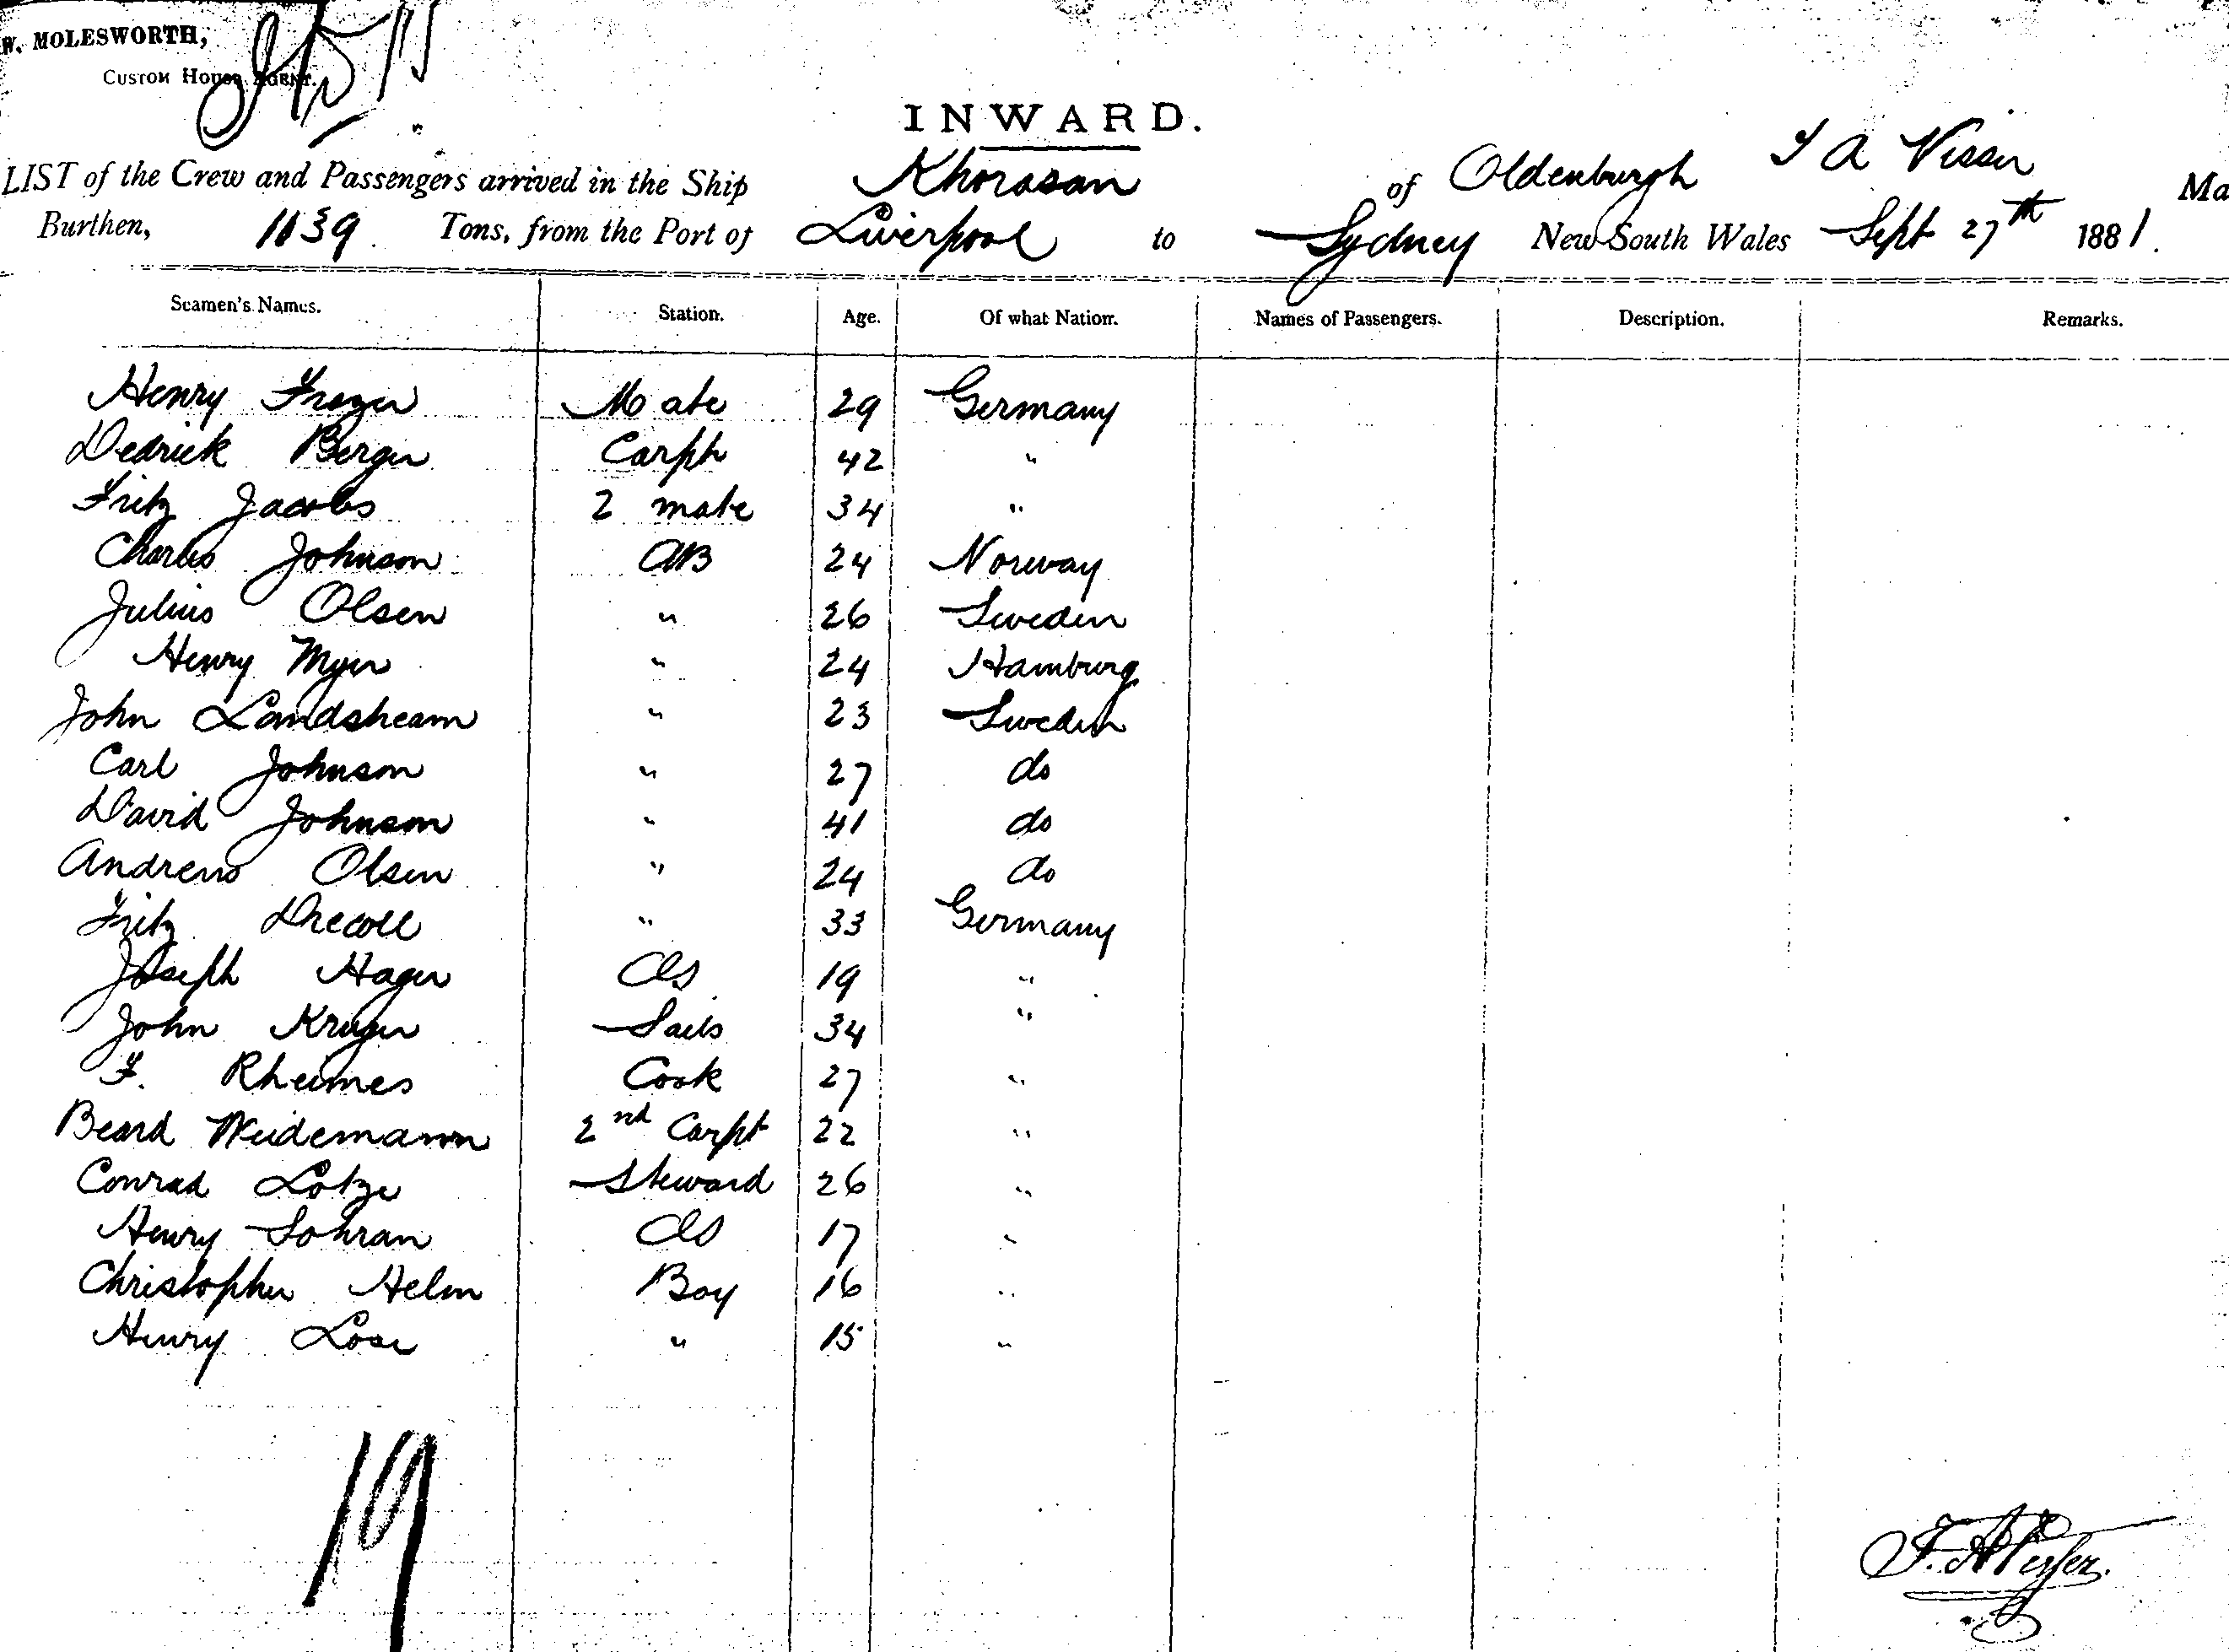 W. MOLESWORTH,
CUSTOM HOUSE AGENT.
INWARD.
LIST of the Crew and Passengers arrived in the Ship Khorasan of Oldenburgh J A Visser Ma
Burthen, 1139 Tons, from the Port of Liverpool to Sydney New South Wales Sept 27th 1881.
Seamen's Names. Station. Age. Of what Nation. Names of Passengers. Description. Remarks.
Henry Mate 29 Germany
Dedrick Berger Carptr 42 "
Fritz Jacobs 2 mate 34 "
Charles Johnson AB 24 Norway
Julius Olsen " 26 Sweden
Henry Myer " 24 Hamburg
John Landsheam " 23 Sweden
Carl Johnson " 27 do
David Johnson " 41 do
Andrew Olsen " 24 do
Fritz Drecoll " 33 Germany
Joseph Hager OS 19 "
John Kruger Sails 34 "
F. Rheimes Cook 27 "
Beard Weidemann 2nd Carpt 22 "
Conrad Lotze Steward 26 "
Henry Sohran OS 17 "
Christopher Helm Boy 16 "
Henry Lose " 15 "
19